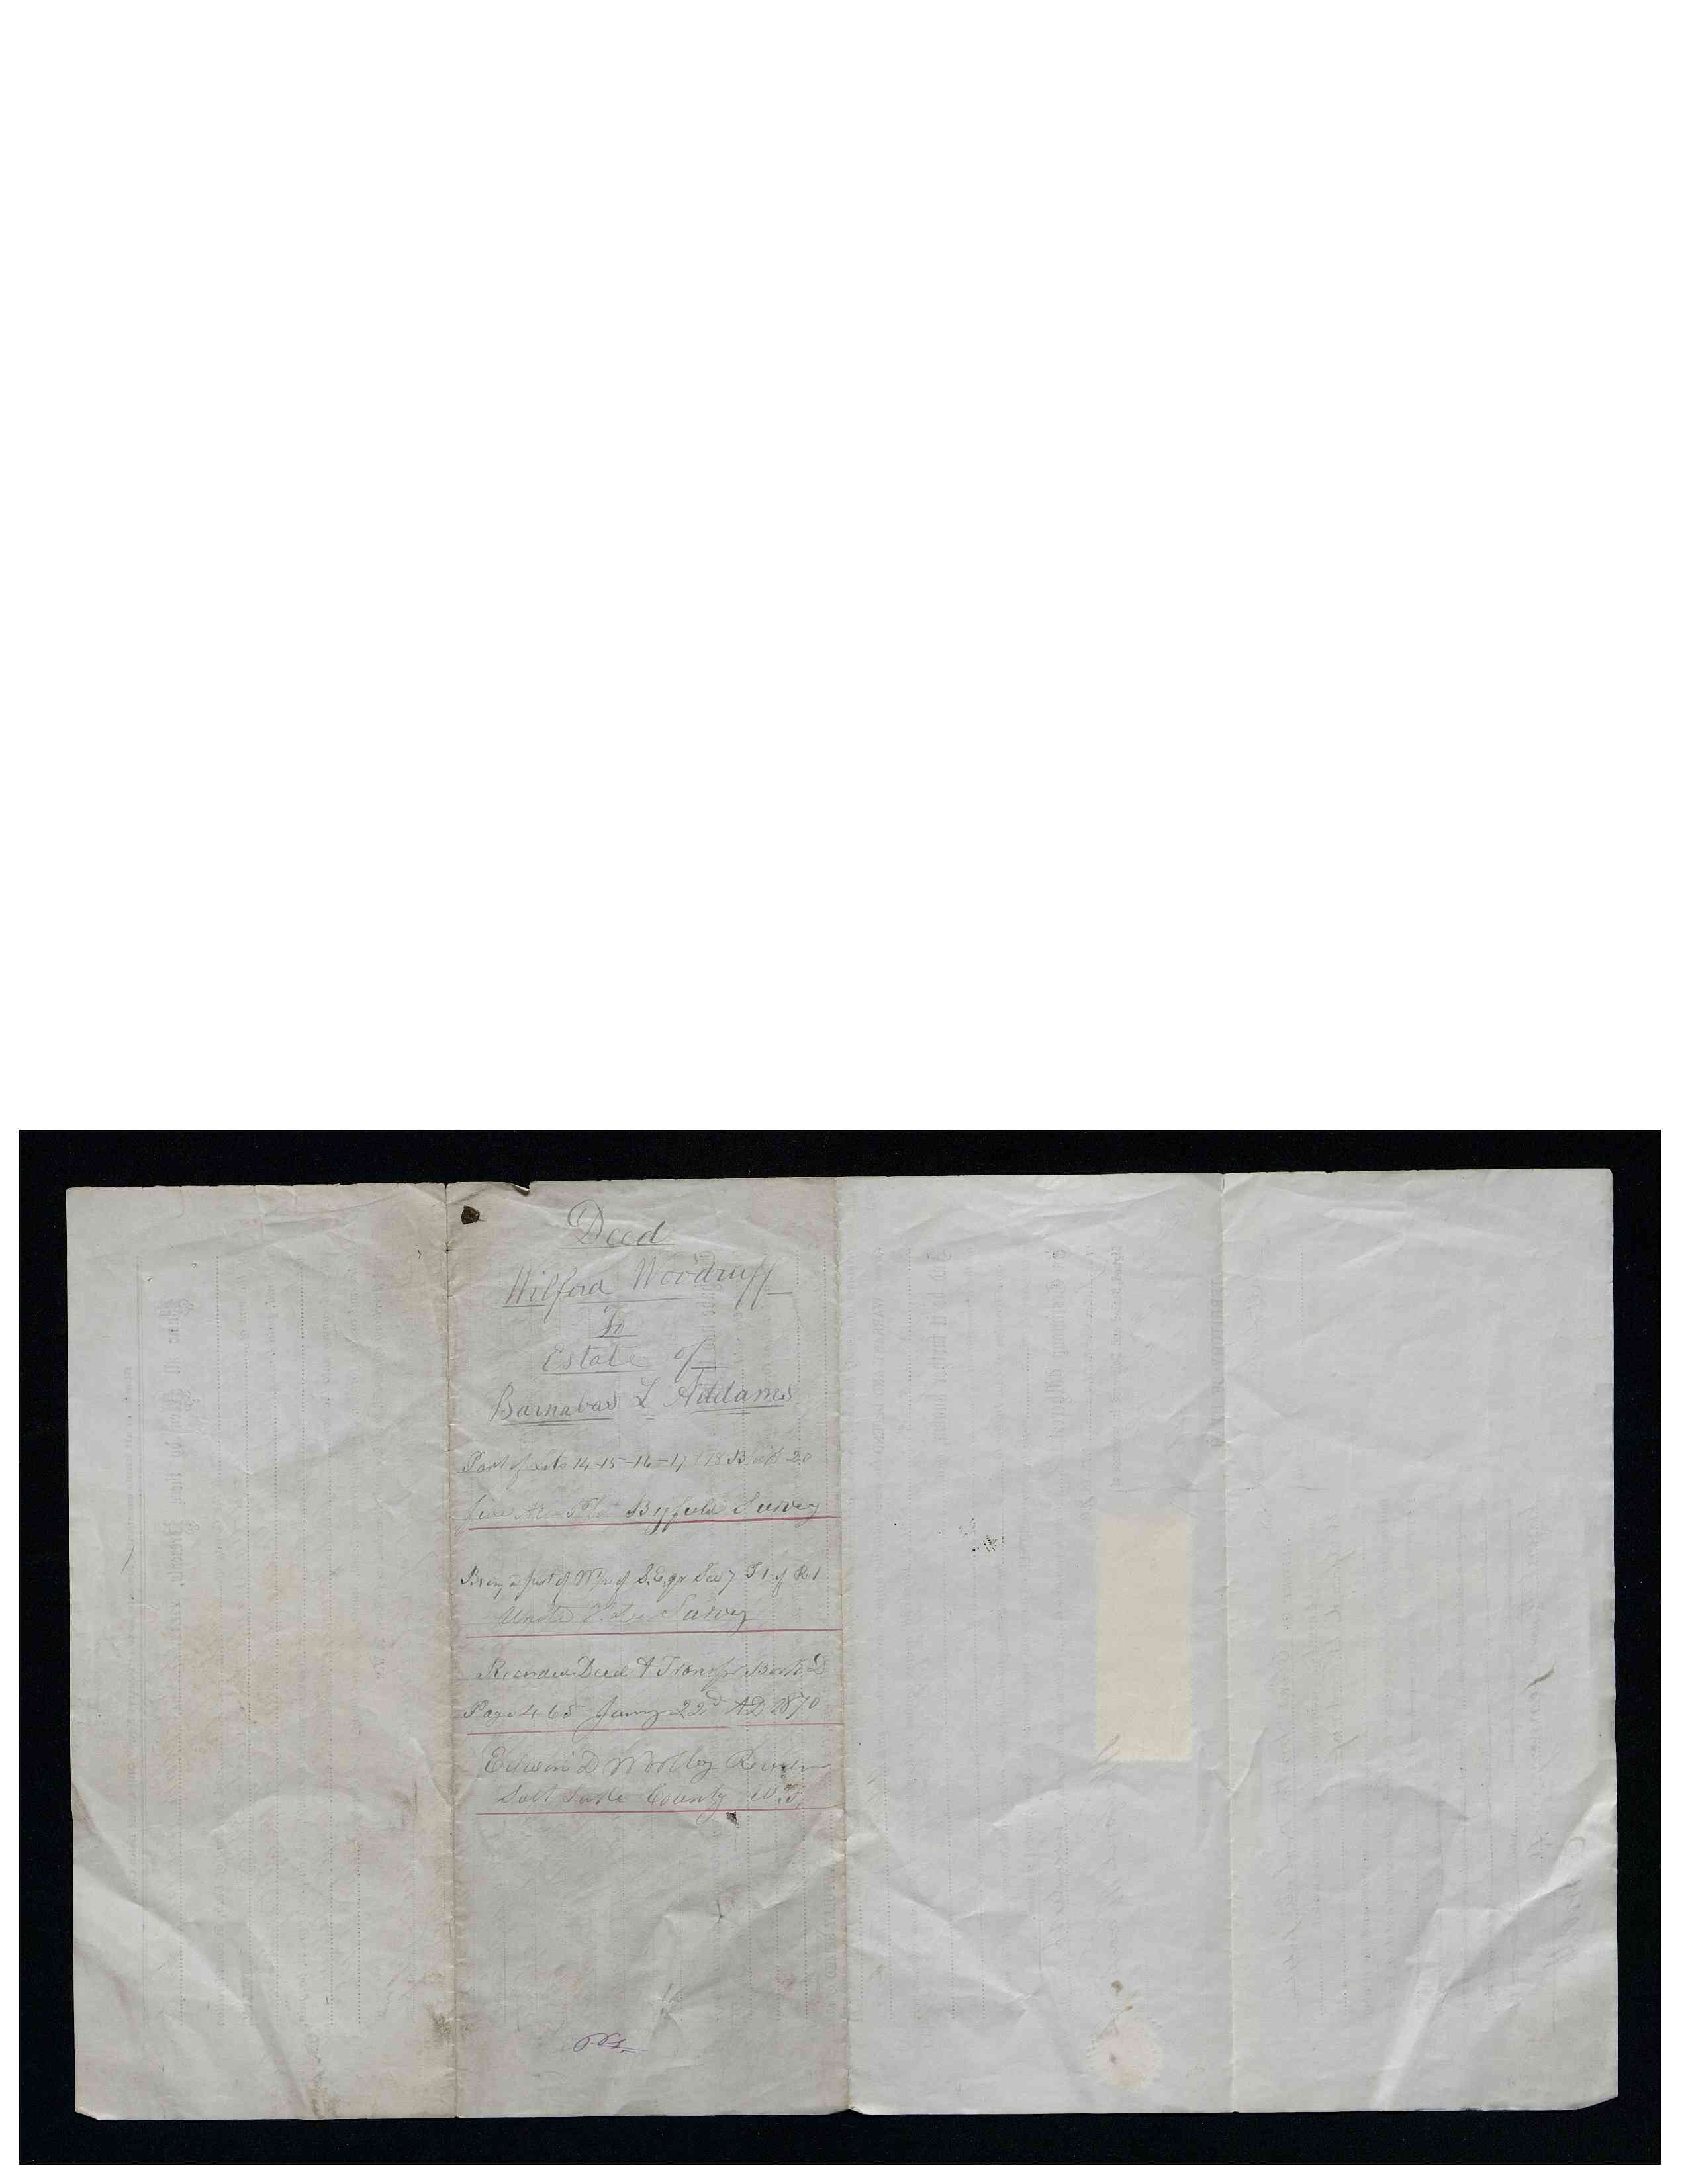 Deed
Wilford Woodruff
To
Estate of
Barnabas L Addams
Part of Lots 14-15-16-17 18 Block 20
five Acre Plot Bigfield Survey
Being a part of of S.E. qr Sec 7 R 1
United States Survey
Recorded Deed & Transfer Book D
Page 465 Jany 22d AD 1870
Edwin D Woolley Recorder
Salt Lake County U.T.